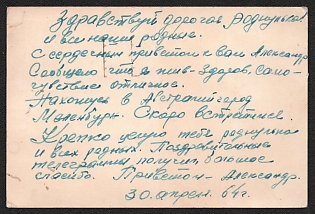 Здравствуй дорогая Роднулька
и все наши родные.
С сердечным приветом к вам Александр.
Сообщаю что я жив-здоров, само-
чувствие отличное.
Нахожусь в
Скоро встретимся.
Крепко целую тебя роднулька
и всех родных. Поздравительные
телеграммы получил, большое
спасибо. Приветом - Александр.
30. апрел 64г.